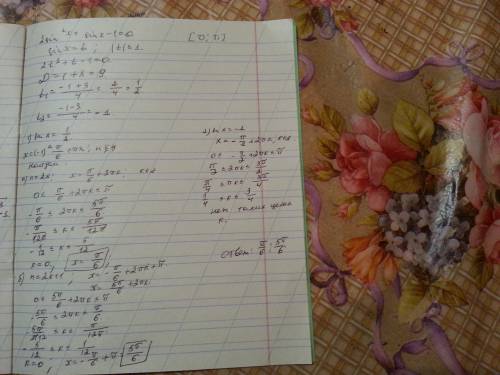 2sin²x + sinx - 1 = 0 [0; π]
sinx = t; |t| ≤ 1
2t² + t - 1 = 0
D = 1 + 8 = 9
t₁ = (-1+3)/4 = 2/4 = 1/2
t₂ = (-1-3)/4 = -1
1) sin x = 1/2
x = (-1)ⁿ π/6 + πn; n∈Z
а) n = 2k; x = π/6 + 2πk, k∈Z
0 ≤ π/6 + 2πk ≤ π
-π/6 ≤ 2πk ≤ 5π/6
-π/12π ≤ k ≤ 5π/12π
-1/12 ≤ k ≤ 5/12
k=0, x = π/6
б) n = 2k+1, x = -π/6 + 2πk + π
x = 5π/6 + 2πk
0 ≤ 5π/6 + 2πk ≤ π
-5π/6 ≤ 2πk ≤ π/6
-5/12 ≤ k ≤ 1/12
k=0, x = -π/6 + π = 5π/6
2) sin x = -1
x = -π/2 + 2πk, k∈Z
0 ≤ -π/2 + 2πk ≤ π
π/2 ≤ 2πk ≤ 3π/2
π/4 ≤ πk ≤ 3π/4
1/4 ≤ k ≤ 3/4
нет таких целых
k.
Ответ: π/6; 5π/6